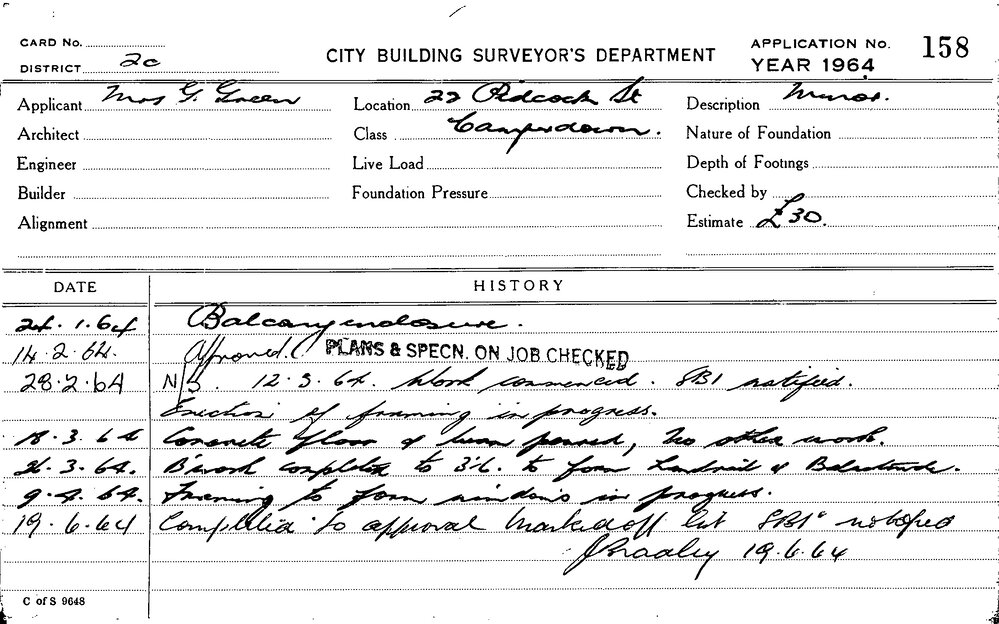 CARD No.
DISTRICT 2c
CITY BUILDING SURVEYOR'S DEPARTMENT
APPLICATION No. 158
YEAR 1964
Applicant Mrs G. Green
Location 22 Pidcock St
Description Minor.
Architect
Class Camperdown.
Nature of Foundation
Engineer
Live Load
Depth of Footings
Builder
Foundation Pressure
Checked by
Alignment
Estimate £30.
DATE HISTORY
24.1.64 Balcony enclosure.
14.2.64. Approved. PLANS & SPECN. ON JOB CHECKED
28.2.64 N/S. 12.3.64. Work commenced. SBI notified.
Erection of framing in progress.
18.3.64 Concrete floor of poured, no other work.
3.64. B'work completed to 3'6. to form handrail &
9.4.64. Framing to form windows in progress.
19.6.64 Completed to approval Marked off list SBI notified
19.6.64
C of S 9648